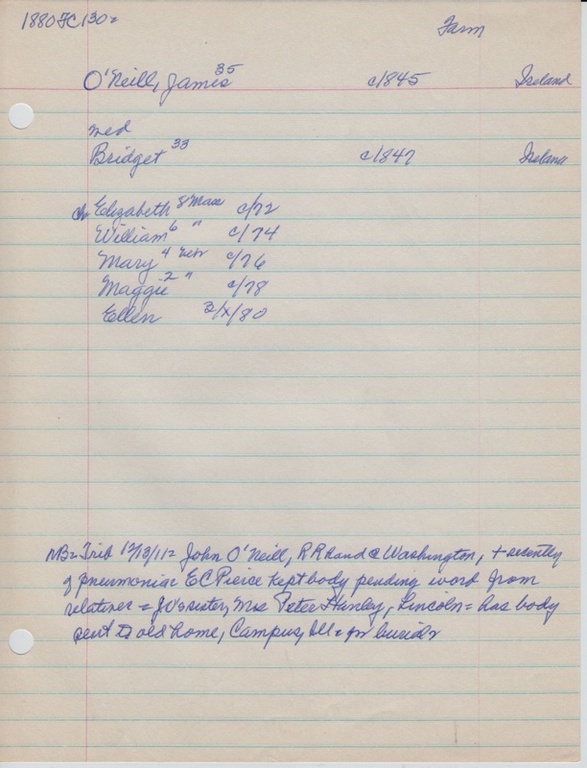 1880 FC 130=
Farm
O'Neill, James 35 c1845 Ireland
med
Bridget 33 c1847 Ireland
ch Elizabeth 8 Mass c/72
William 6 " c/74
Mary 4 Nebr c/76
Maggie 2 " c/78
Ellen 2/x/80
NB= Trib 12/13/11= John O'Neill, RR hand @ Washington, + recently
of pneumonia= E C Pierce kept body pending word from
relatives = J O's sister, Mrs Peter Hanley, Lincoln= has body
sent to old home, Campus, Ill= for burial=